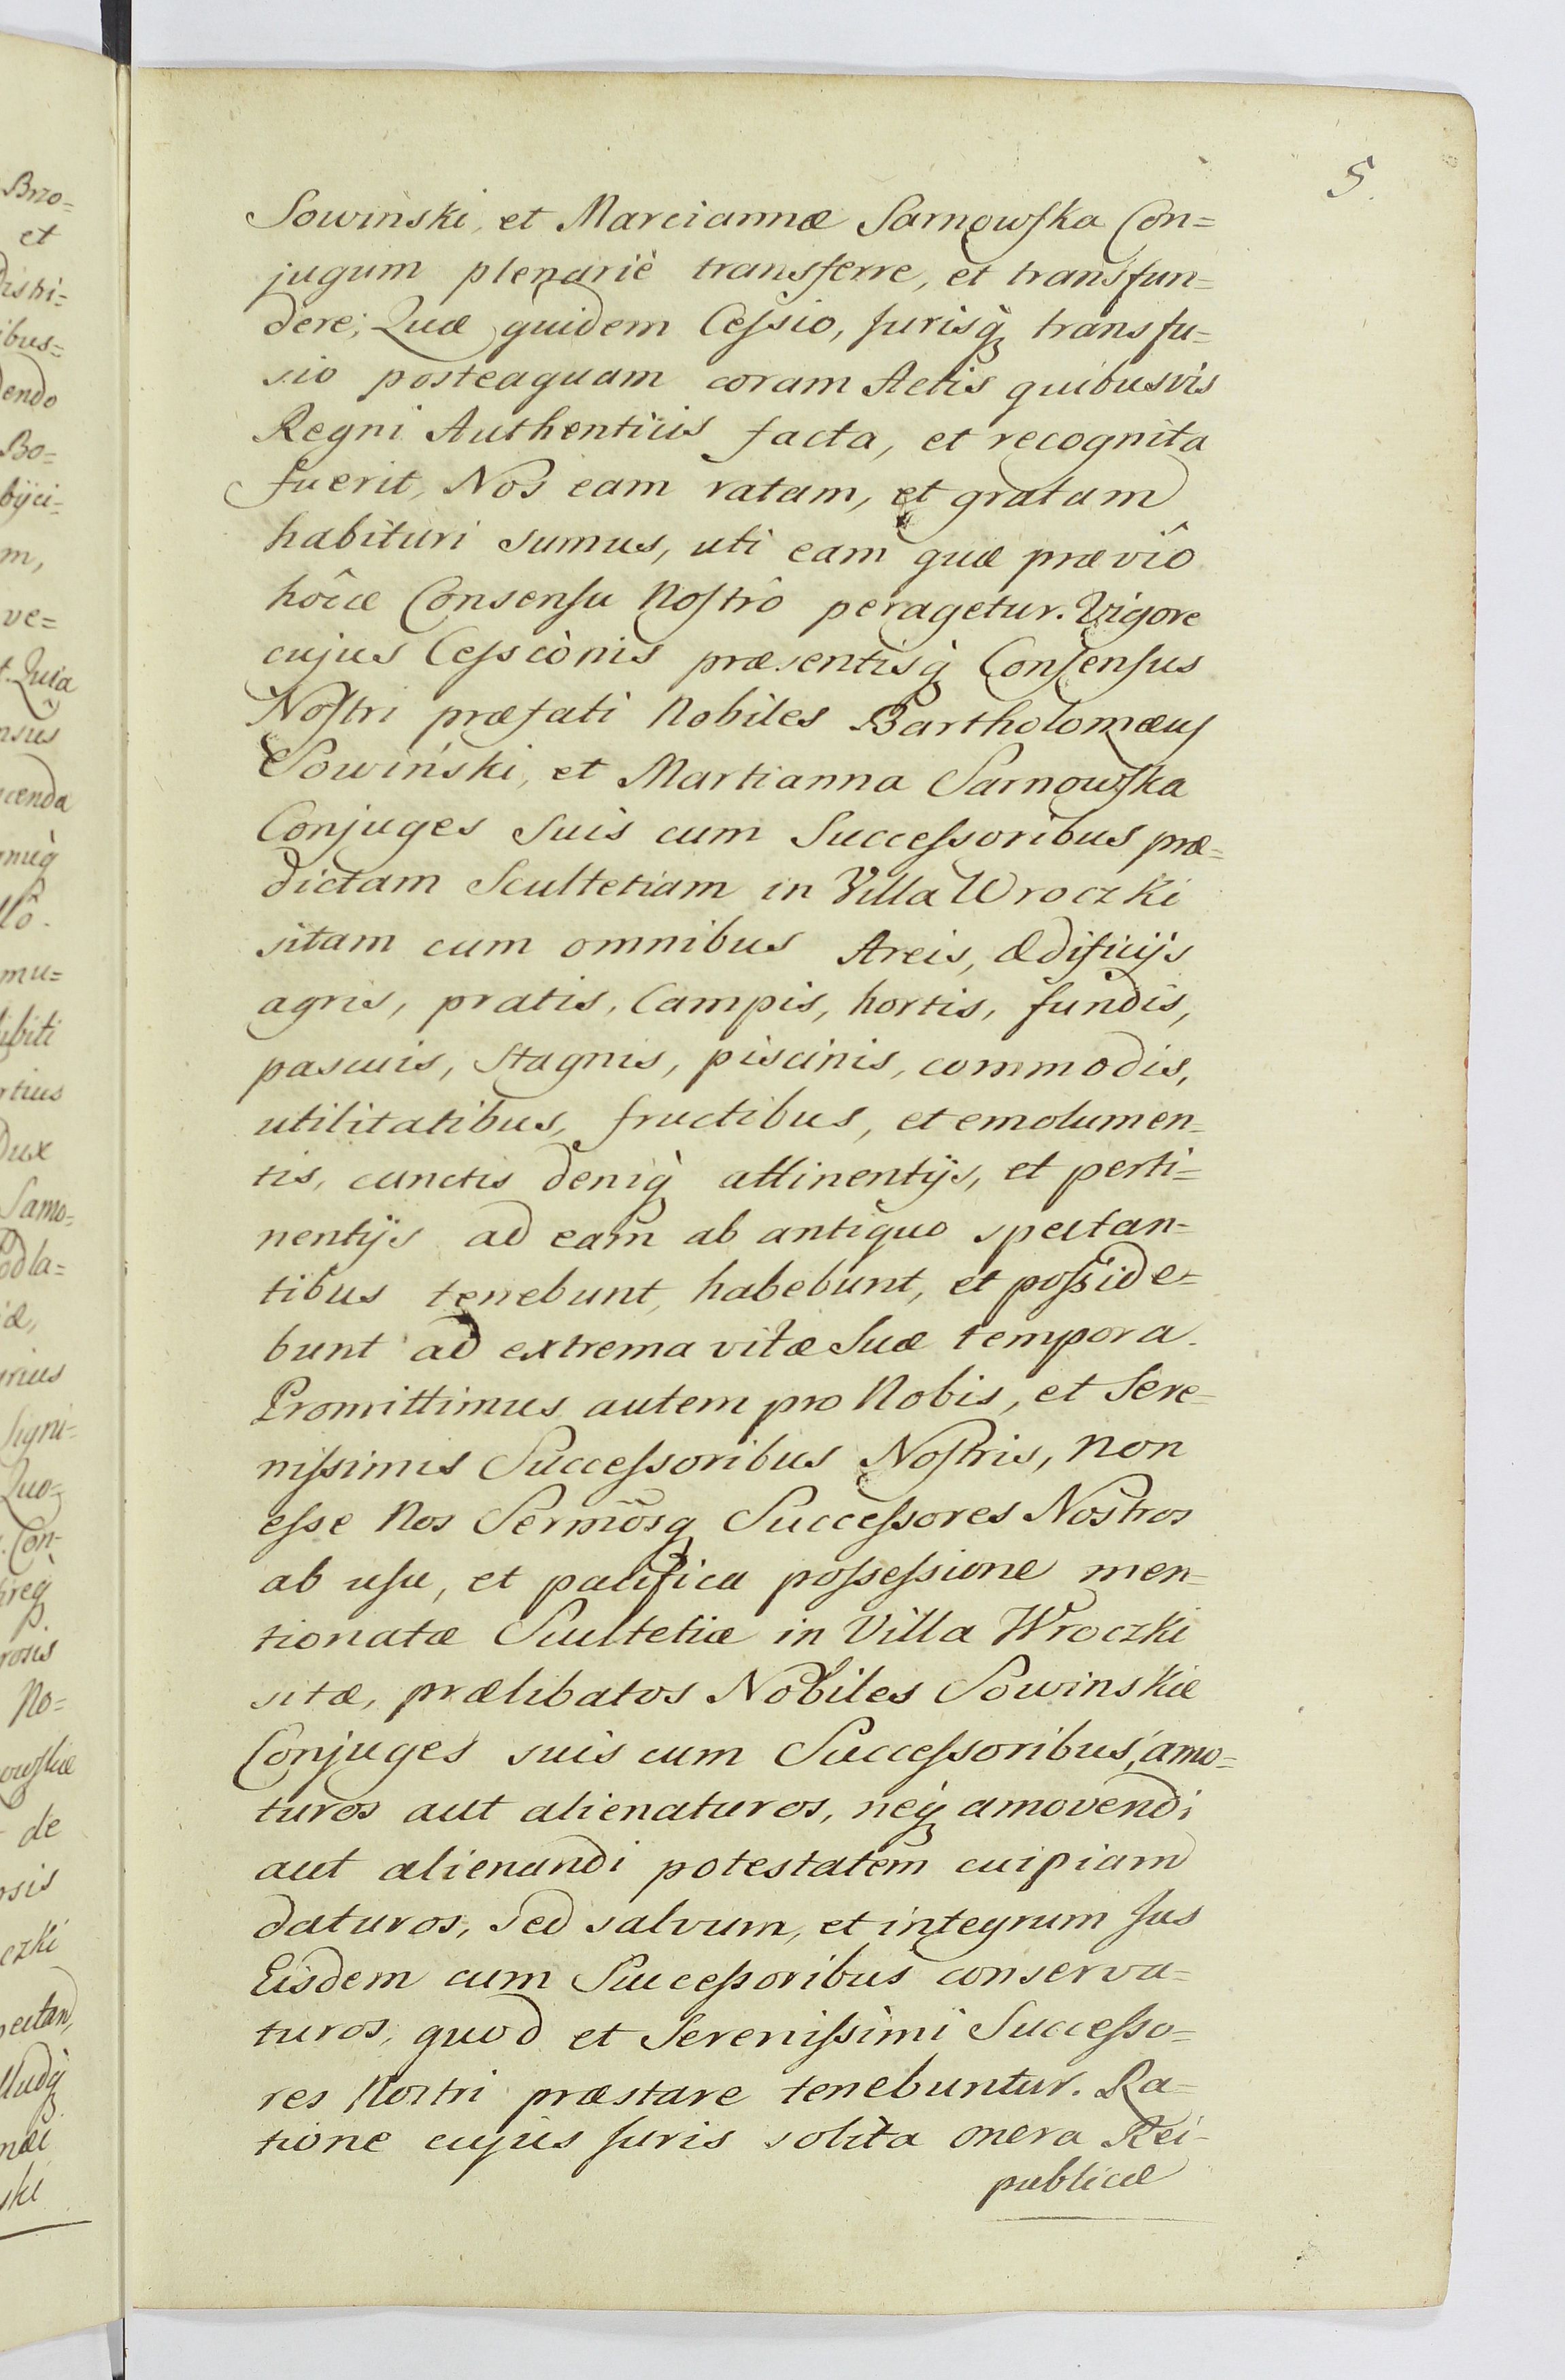 5.
Sowinski, et Marciannæ Sarnowska Con=
jugum plenariè transferre, et transfun=
dere; Quæ quidem Cessio, Jurisq́ transfu=
sio posteaquam coram Actis quibusvis
Regni Authenticis facta, et recognita
fuerit, Nos eam ratam, et gratam
habituri sumus, uti eam quæ præviô
hôcce Consensu Nostrô peragetur. Vigore
cujus Cessionis præsentisq́ Consensus
Nostri præfati Nobiles Bartholomæus
Sowiński, et Martianna Sarnowska
Conjuges Suis cum Successoribus præ=
dictam Scultetiam in Villa Wroczki
sitam cum omnibus Areis, Ædificijs
agris, pratis, Campis, hortis, fundis,
pascuis, Stagnis, piscinis, commodis,
utilitatibus, fructibus, et emolumen=
tis, cunctis deniq́ attinentijs, et perti=
nentijs ad eam ab antiquo spectan=
tibus tenebunt, habebunt, et posside=
bunt ad extrema vitæ Suæ tempora.
Promittimus autem pro Nobis, et Sere=
nissimis Successoribus Nostris, non
esse Nos Sermõsq Successores Nostros
ab usu, et pacifica possessione men=
tionatæ Scultetiæ in Villa Wroczki
sitæ, prælibatos Nobiles Sowinskie
Conjuges suis cum Successoribus, amo=
turos aut alienaturos, neq́ amovendi
aut alienandi potestatem cuipiam
daturos, sed salvum, et integrum Jus
Eisdem cum Successoribus conserva=
turos, quod et Serenissimi Successo=
res Nostri præstare tenebuntur. Ra=
tione cujus Juris solita onera Rei=
publicæ
Brzo=
et
distri=
ibus=
dendo
Bo=
bÿci=
m,
ve=
t. Quia
nsus
cenda
lô.
mu=
ibiti
rtius
Dux
Samo=
odla=
iæ,
rius
Signi=
Quo=
. Con-
rosis
No=
owskie
de
osis
czki
ski